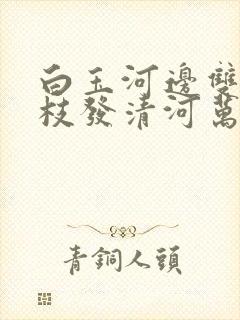 白玉河邊雙
枝發清河萬
青銅人頭